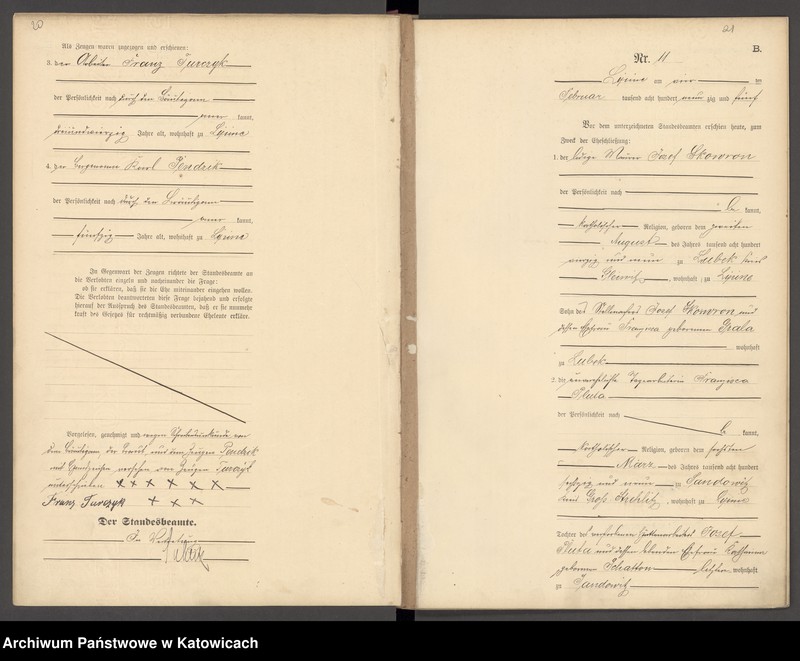 20
Als Zeugen waren zugezogen und erschienen:
3. der Arbeiter Franz Turczyk
der Persönlichkeit nach durch den Bräutigam
kannt,
dreiundvierzig Jahre alt, wohnhaft zu Lipine
4. der Bergmann Karl Pendrek
der Persönlichkeit nach durch den Bräutigam
kannt,
fünfzig Jahre alt, wohnhaft zu Lipine
In Gegenwart der Zeugen richtete der Standesbeamte an
die Verlobten einzeln und nacheinander die Frage:
ob sie erklären, daß sie die Ehe miteinander eingehen wollen.
Die Verlobten beantworteten diese Frage bejahend und erfolgte
hierauf der Ausspruch des Standesbeamten, daß er sie nunmehr
kraft des Gesetzes für rechtmäßig verbundene Eheleute erkläre.
Vorgelesen, genehmigt und wegen Schreibensunkunde von
dem Bräutigam, der Braut und dem Zeugen Pendrek
mit Handzeichen versehen vom Zeugen
unterschrieben + + + + + +
Franz Turczyk + + +
Der Standesbeamte.
In Vertretung
21
B.
Nr. 11
Lipine am vier ten
Februar tausend acht hundert neun zig und fünf
Vor dem unterzeichneten Standesbeamten erschien heute, zum
Zweck der Eheschließung:
1. der ledige Maurer Josef Skowron
der Persönlichkeit nach
be kannt,
katholischer Religion, geboren den zweiten
August des Jahres tausend acht hundert
und neun zu Lubek Kreis
Gleiwitz, wohnhaft zu Lipine
Sohn des Josef Skowron und
dessen Ehefrau Franzisca geborenen Grala
wohnhaft
zu Lubek
2. die unverehelichte Tagearbeiterin Franzisca
Pluta
der Persönlichkeit nach
be kannt,
katholischer Religion, geboren den sechsten
März des Jahres tausend acht hundert
sechszig und neun zu Sandowitz
Kreis Groß Strehlitz, wohnhaft zu Lipine
Tochter des verstorbenen Hüttenarbeiters Josef
Pluta und dessen lebenden Ehefrau
geborenen Schatton letztere wohnhaft
zu Sandowitz
Archiwum Państwowe w Katowicach